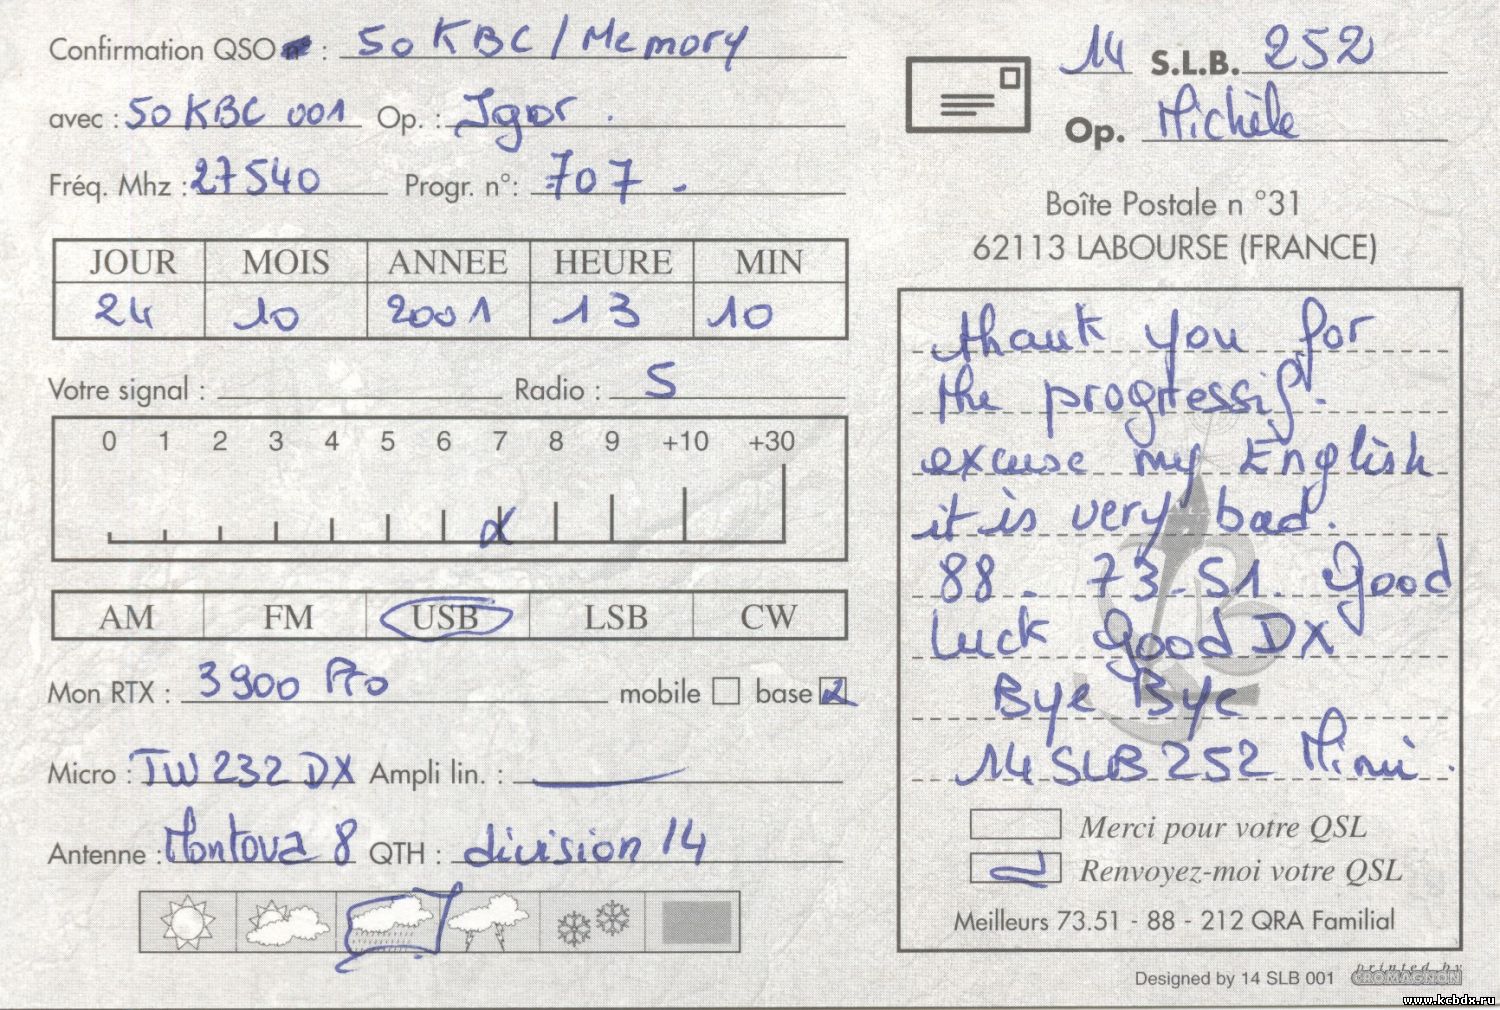 Confirmation QSO n° : 50 KBC / Memory
avec : 50 KBC 001 Op. : Igor.
Fréq. Mhz : 27540 Progr. n° : 707.
JOUR MOIS ANNEE HEURE MIN
24 10 2001 13 10
Votre signal : Radio : 5
0 1 2 3 4 5 6 7 8 9 +10 +30
AM FM USB LSB CW
Mon RTX : 3900 Pro mobile base
Micro : TW 232 DX Ampli lin. :
Antenne : Montova 8 QTH : division 14
14 S.L.B. 252
Op. Michèle
Boîte Postale n °31
62113 LABOURSE (FRANCE)
thank you for
the progressif.
excuse my English
it is very bad.
88 - 73-51. Good
Luck good DX
Bye Bye
14 SLB 252 Mimi.
Merci pour votre QSL
Renvoyez-moi votre QSL
Meilleurs 73.51 - 88 - 212 QRA Familial
Designed by 14 SLB 001
printed by
CROMAGNON
www.kcbdx.ru